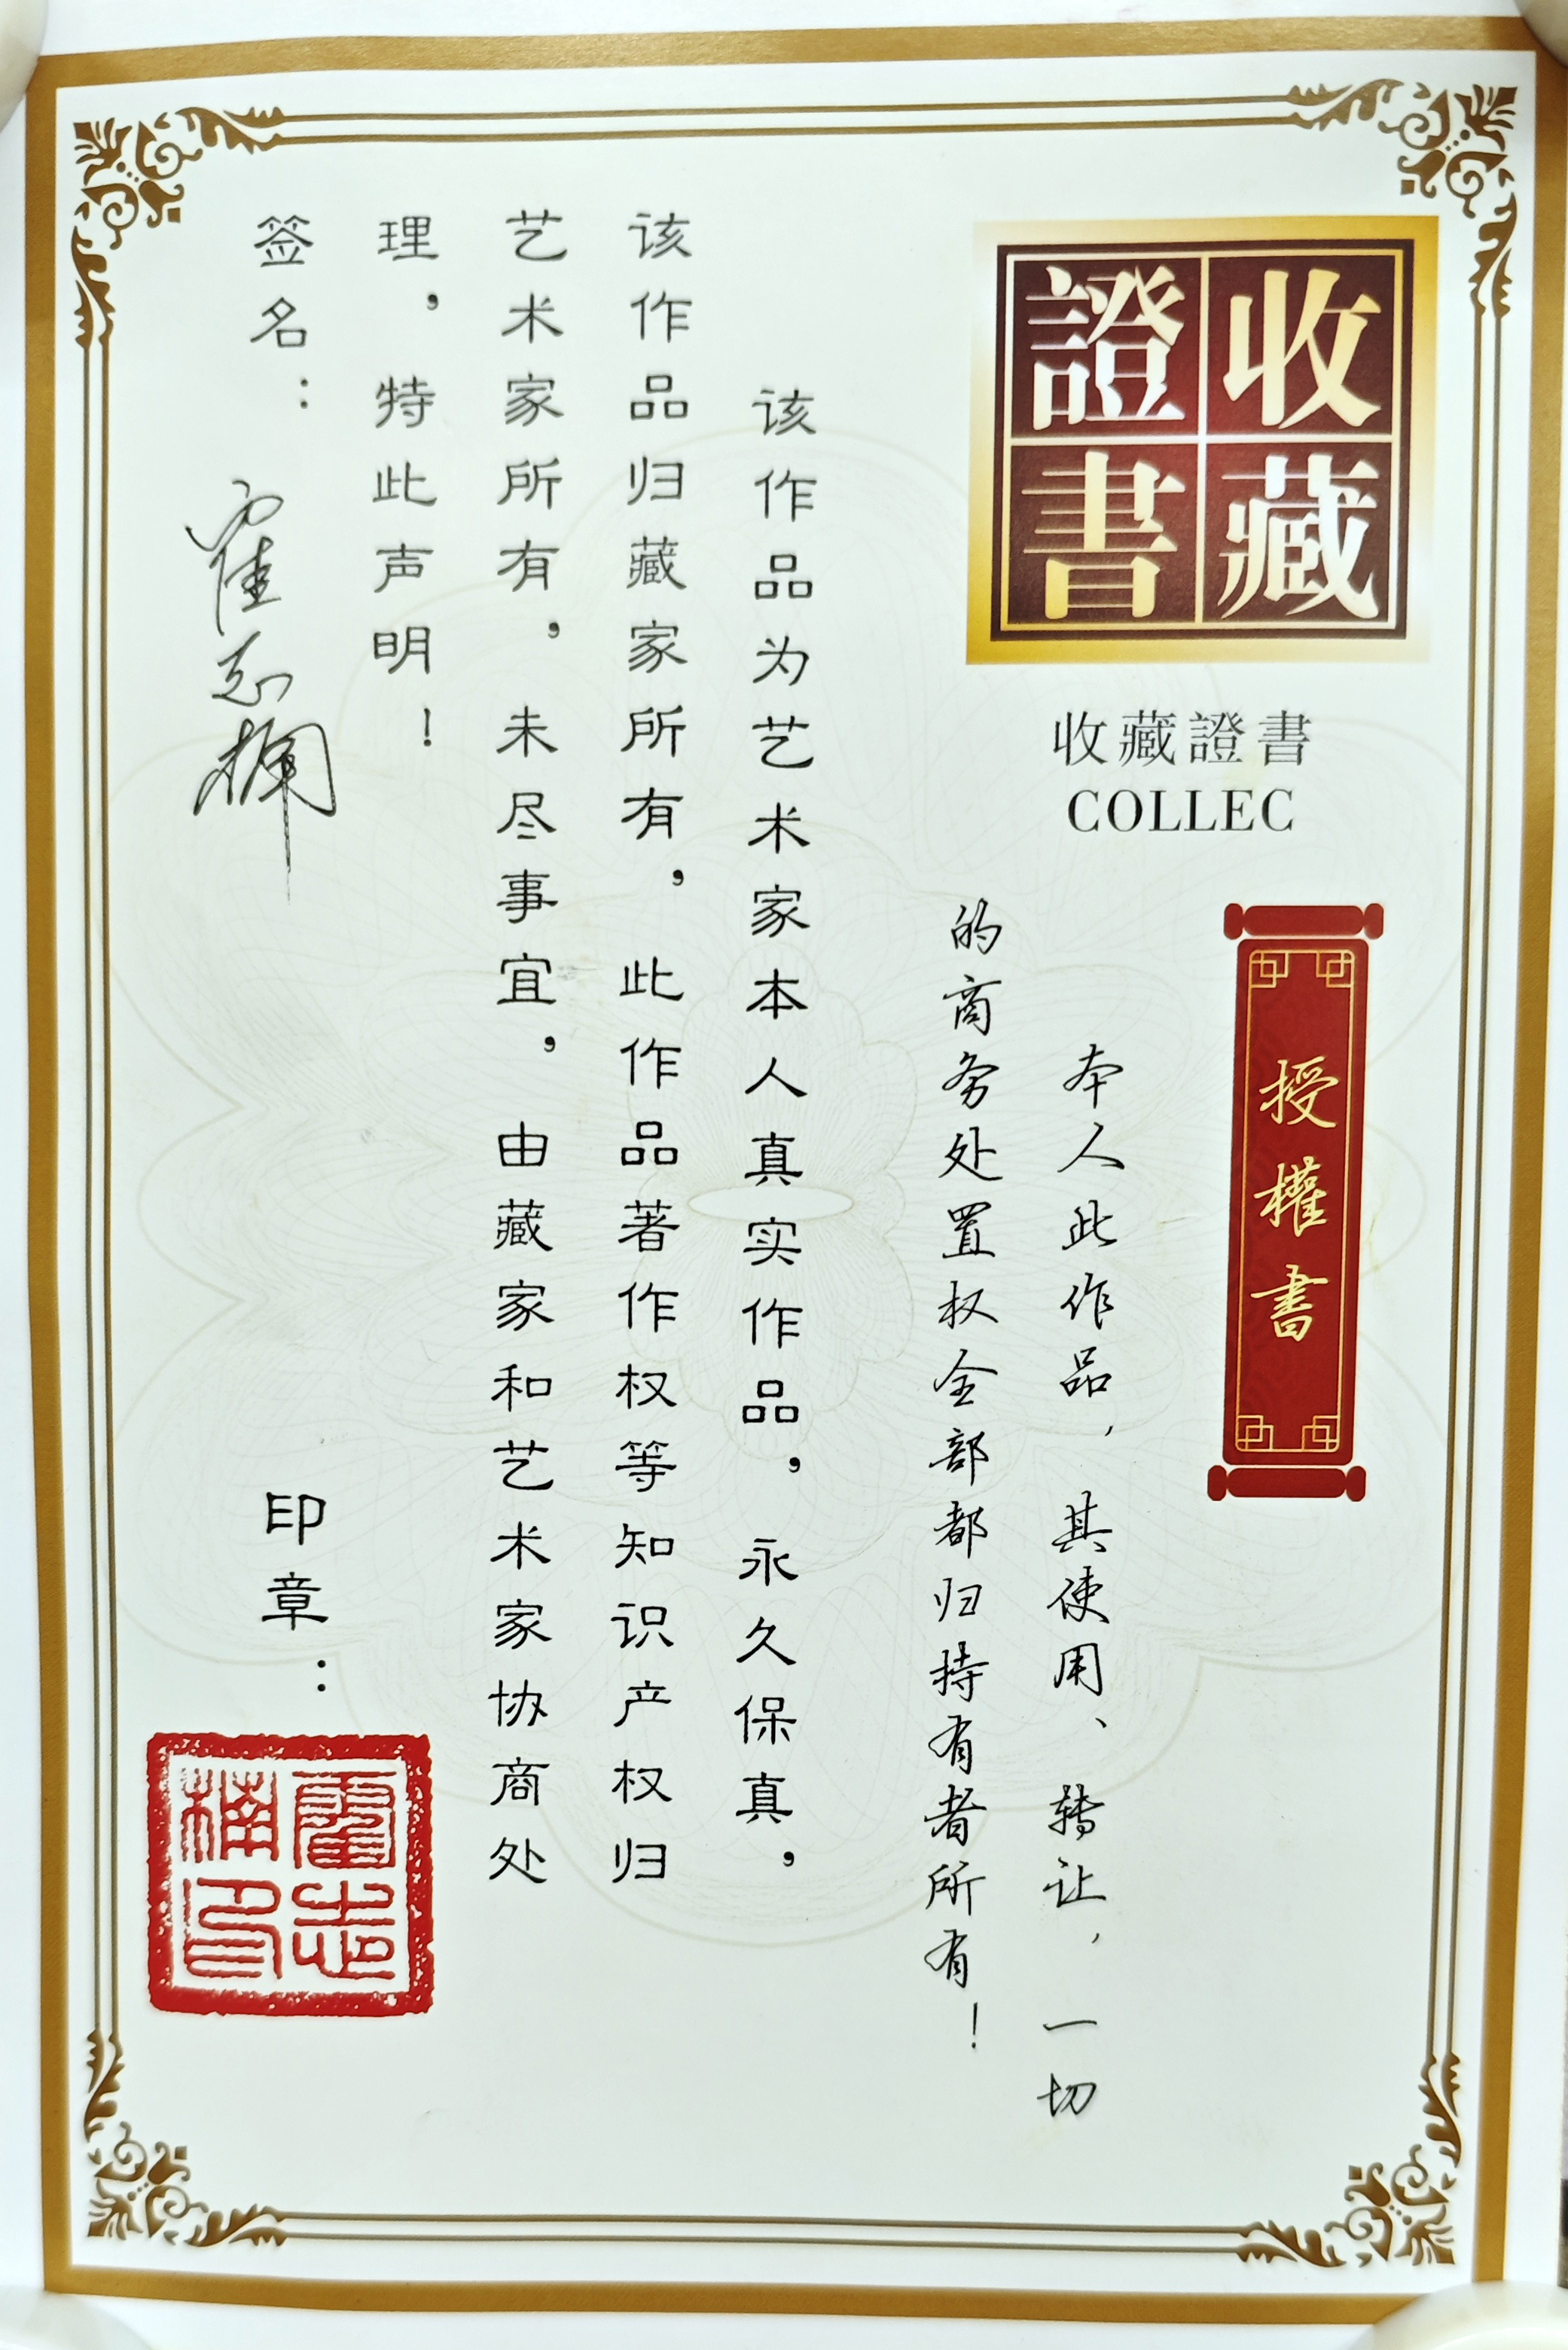 收藏
證書
收藏證書
COLLEC
授權書
本人此作品，其使用、转让，一切
的商务处置权全部都归持有者所有！
该作品为艺术家本人真实作品，永久保真，
该作品归藏家所有，此作品著作权等知识产权归
艺术家所有，未尽事宜，由藏家和艺术家协商处
理，特此声明！
签名：霍志楠
印章：
霍志
楠印